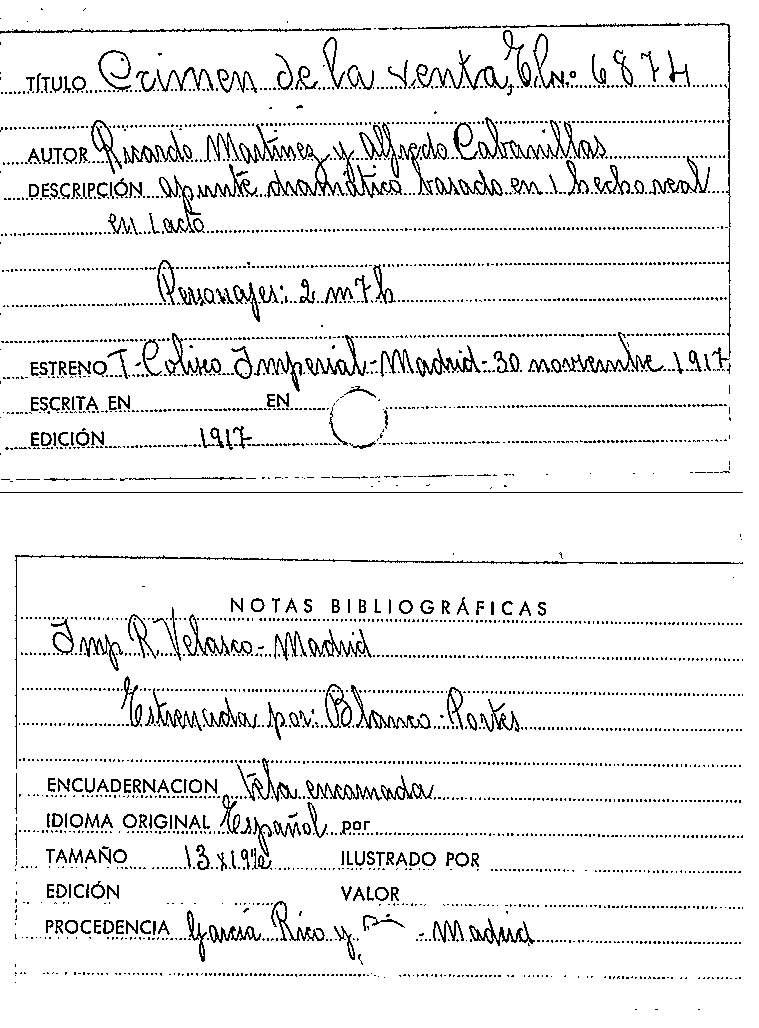 TÍTULO Crimen de la venta, El N.º 6874
AUTOR Ricardo Martínez y Alfredo Cabanillas
DESCRIPCIÓN apunte dramático basado en 1 hecho real
en 1 acto
Personajes: 2 m 7 h
ESTRENO T-Coliseo Imperial-Madrid-30 noviembre 1917
ESCRITA EN EN
EDICIÓN 1917
NOTAS BIBLIOGRÁFICAS
Imp R. Velasco-Madrid
Estrenada por: Blanco-Portes
ENCUADERNACION Tela encarnada
IDIOMA ORIGINAL Español por
TAMAÑO 13 x 19 ILUSTRADO POR
EDICIÓN VALOR
PROCEDENCIA García Rico y - Madrid